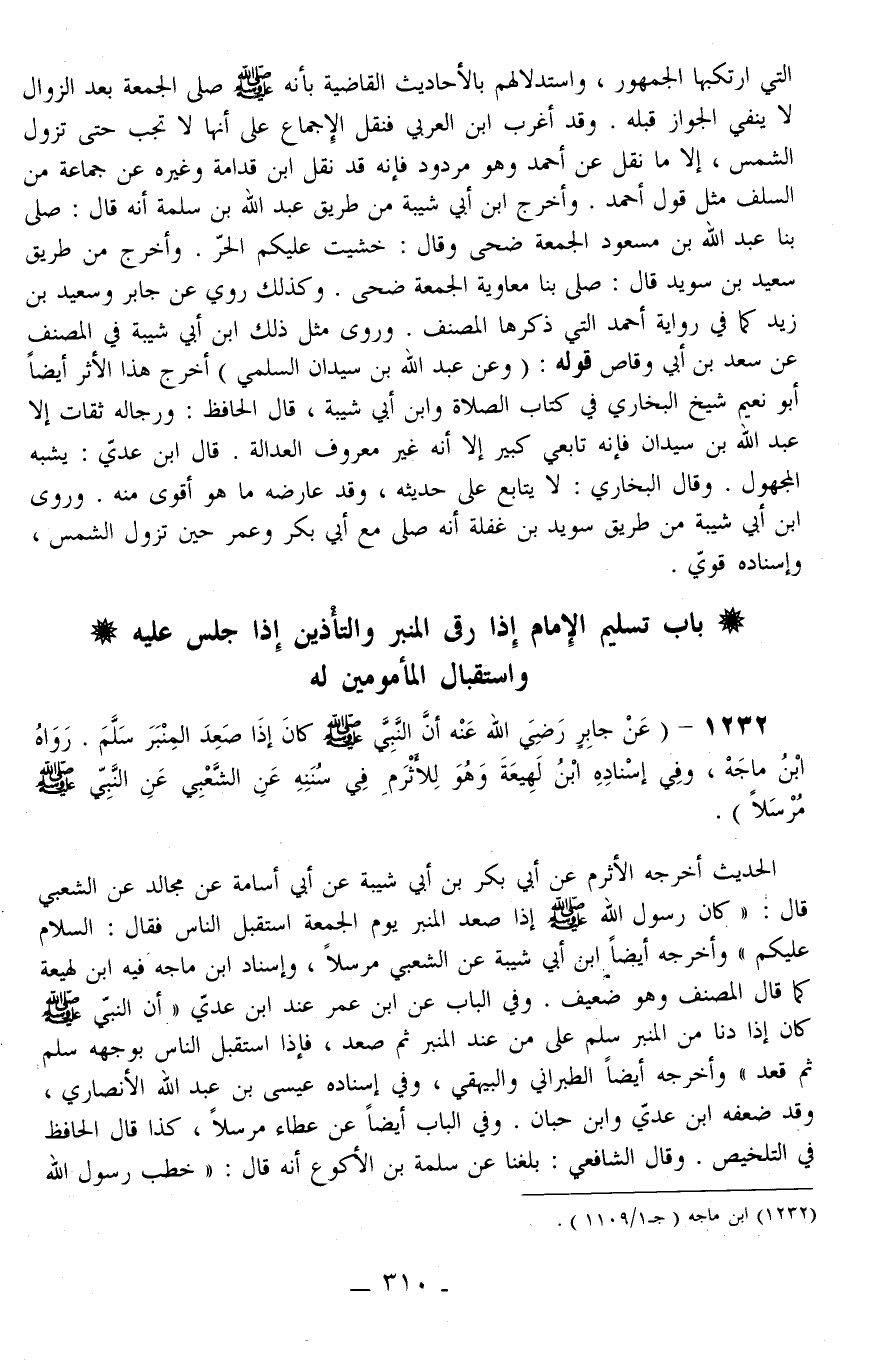 التي ارتكبها الجمهور ، واستدلالهم بالأحاديث القاضية بأنه ﷺ صلى الجمعة بعد الزوال
لا ينفي الجواز قبله . وقد أغرب ابن العربي فنقل الإجماع على أنها لا تجب حتى تزول
الشمس ، إلا ما نقل عن أحمد وهو مردود فإنه قد نقل ابن قدامة وغيره عن جماعة من
السلف مثل قول أحمد . وأخرج ابن أبي شيبة من طريق عبد الله بن سلمة أنه قال : صلى
بنا عبد الله بن مسعود الجمعة ضحى وقال : خشيت عليكم الحرّ . وأخرج من طريق
سعيد بن سويد قال : صلى بنا معاوية الجمعة ضحى . وكذلك روي عن جابر وسعيد بن
زيد كما في رواية أحمد التي ذكرها المصنف . وروى مثل ذلك ابن أبي شيبة في المصنف
عن سعد بن أبي وقاص قوله : ( وعن عبد الله بن سيدان السلمي ) أخرج هذا الأثر أيضاً
أبو نعيم شيخ البخاري في كتاب الصلاة وابن أبي شيبة ، قال الحافظ : ورجاله ثقات إلا
عبد الله بن سيدان فإنه تابعي كبير إلا أنه غير معروف العدالة . قال ابن عديّ : يشبه
المجهول . وقال البخاري : لا يتابع على حديثه ، وقد عارضه ما هو أقوى منه . وروى
ابن أبي شيبة من طريق سويد بن غفلة أنه صلى مع أبي بكر وعمر حين تزول الشمس ،
وإسناده قويّ .
باب تسليم الإمام إذا رقى المنبر والتأذين إذا جلس عليه
واستقبال المأمومين له
١٢٣٢ – ( عَنْ جابِرٍ رَضِيَ الله عَنْه أنَّ النَّبِيَّ ﷺ كانَ إذَا صَعِدَ المِنْبَرَ سَلَّمَ . رَوَاهُ
ابْنُ ماجَهْ ، وفِي إسْنادِهِ ابْنُ لَهِيعَةَ وَهُوَ لِلأَثْرَمِ فِي سُنَنِهِ عَنِ الشَّعْبِي عَنِ النَّبِيّ ﷺ
مُرْسَلاً ) .
الحديث أخرجه الأثرم عن أبي بكر بن أبي شيبة عن أبي أسامة عن مجالد عن الشعبي
قال : « كان رسول الله ﷺ إذا صعد المنبر يوم الجمعة استقبل الناس فقال : السلام
عليكم » وأخرجه أيضاً ابن أبي شيبة عن الشعبي مرسلاً ، وإسناد ابن ماجه فيه ابن لهيعة
كما قال المصنف وهو ضعيف . وفي الباب عن ابن عمر عند ابن عديّ « أن النبيّ ﷺ
كان إذا دنا من المنبر سلم على من عند المنبر ثم صعد ، فإذا استقبل الناس بوجهه سلم
ثم قعد » وأخرجه أيضاً الطبراني والبيهقي ، وفي إسناده عيسى بن عبد الله الأنصاري ،
وقد ضعفه ابن عديّ وابن حبان . وفي الباب أيضاً عن عطاء مرسلاً ، كذا قال الحافظ
في التلخيص . وقال الشافعي : بلغنا عن سلمة بن الأكوع أنه قال : « خطب رسول الله
(١٢٣٢) ابن ماجه ( جـ١١٠٩/١ ) .
ـ ٣١٠ ـ